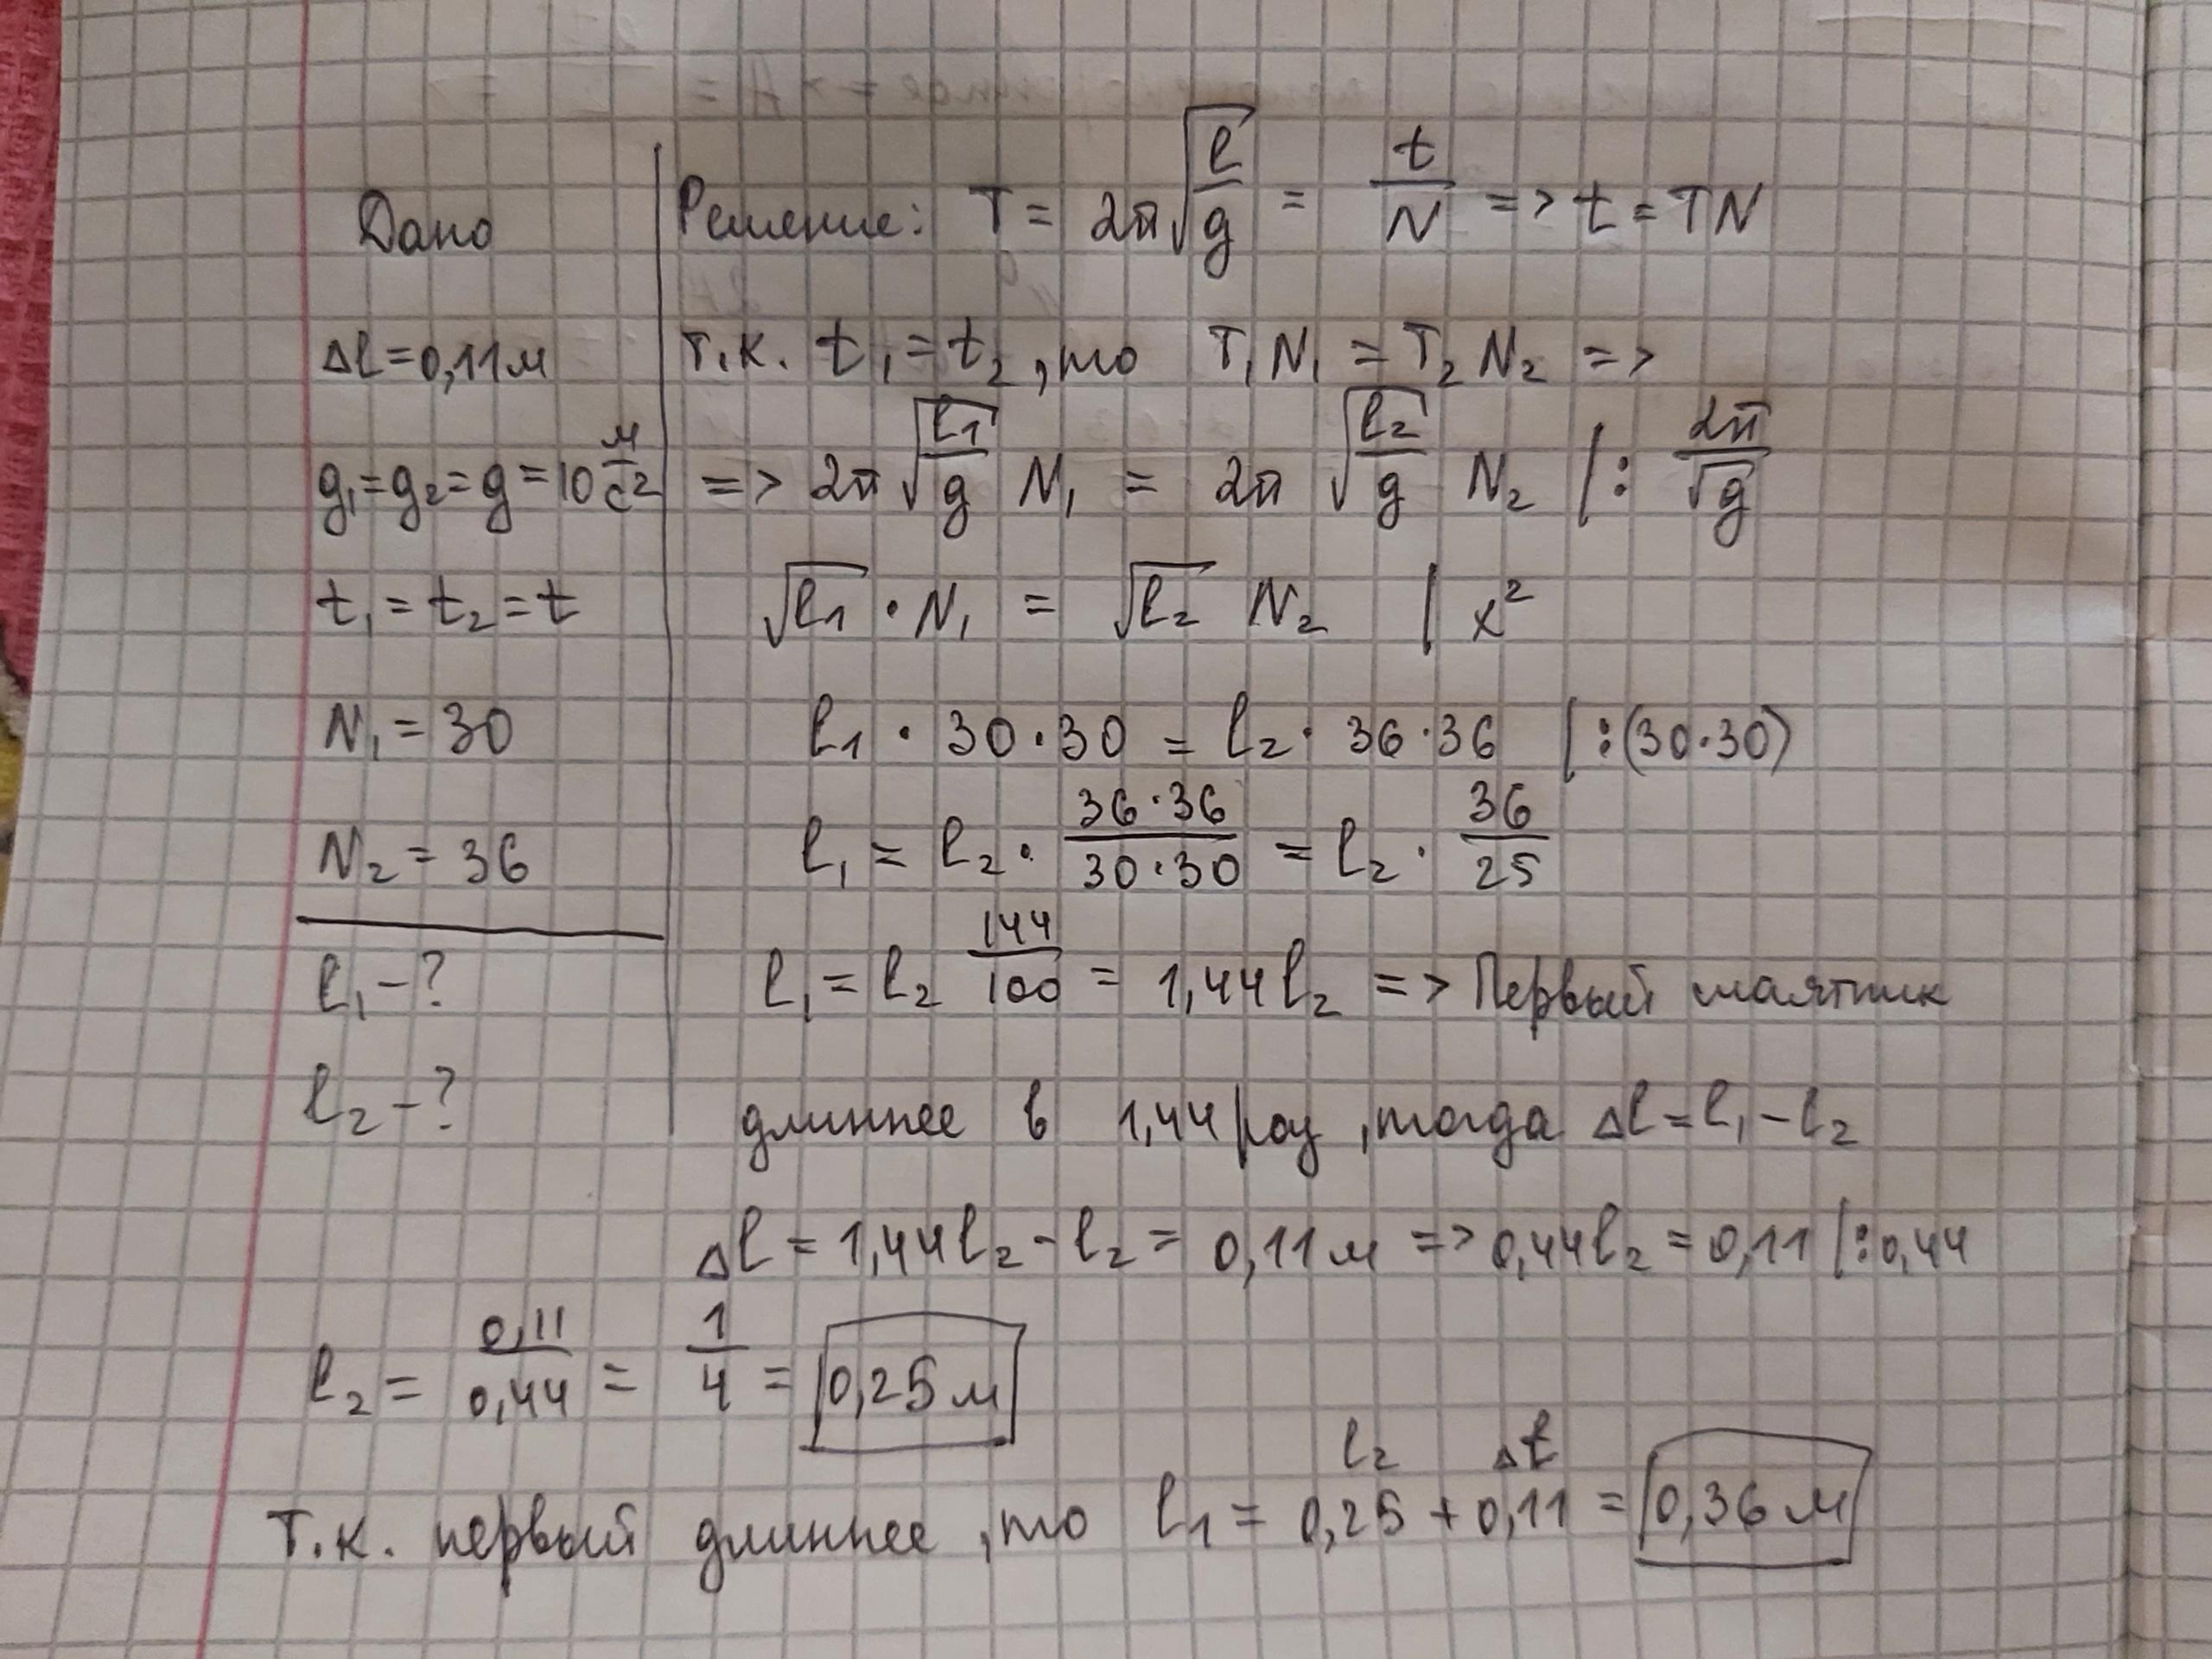 Дано
Δl = 0,11 м
g₁ = g₂ = g = 10 м/с²
t₁ = t₂ = t
N₁ = 30
N₂ = 36
l₁ - ?
l₂ - ?
Решение: T = 2π√(l/g) = t/N => t = TN
т.к. t₁ = t₂, то T₁N₁ = T₂N₂ =>
=> 2π√(l₁/g) N₁ = 2π√(l₂/g) N₂ | : 2π/√g
√l₁ · N₁ = √l₂ N₂ | x²
l₁ · 30 · 30 = l₂ · 36 · 36 | :(30·30)
l₁ = l₂ · (36·36)/(30·30) = l₂ · 36/25
l₁ = l₂ 144/100 = 1,44 l₂ => Первый маятник
длиннее в 1,44 раз, тогда Δl = l₁ - l₂
Δl = 1,44 l₂ - l₂ = 0,11 м => 0,44 l₂ = 0,11 | :0,44
l₂ = 0,11/0,44 = 1/4 = 0,25 м
l₂ Δl
Т.к. первый длиннее, то l₁ = 0,25 + 0,11 = 0,36 м